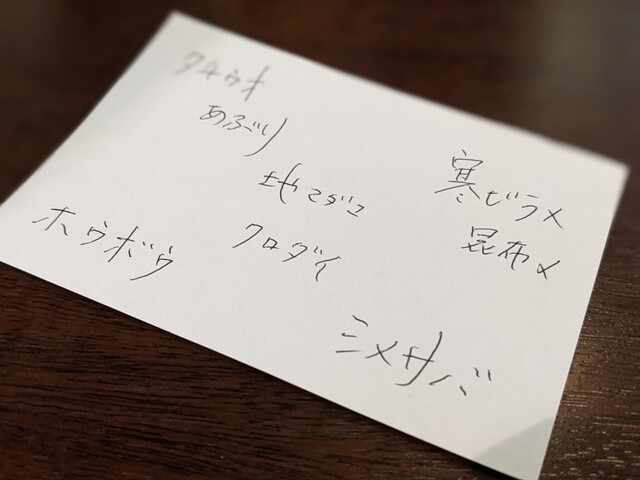 タチウオ
あぶり
地マダコ
クロダイ
ホウボウ
寒ビラメ
昆布〆
シメサバ